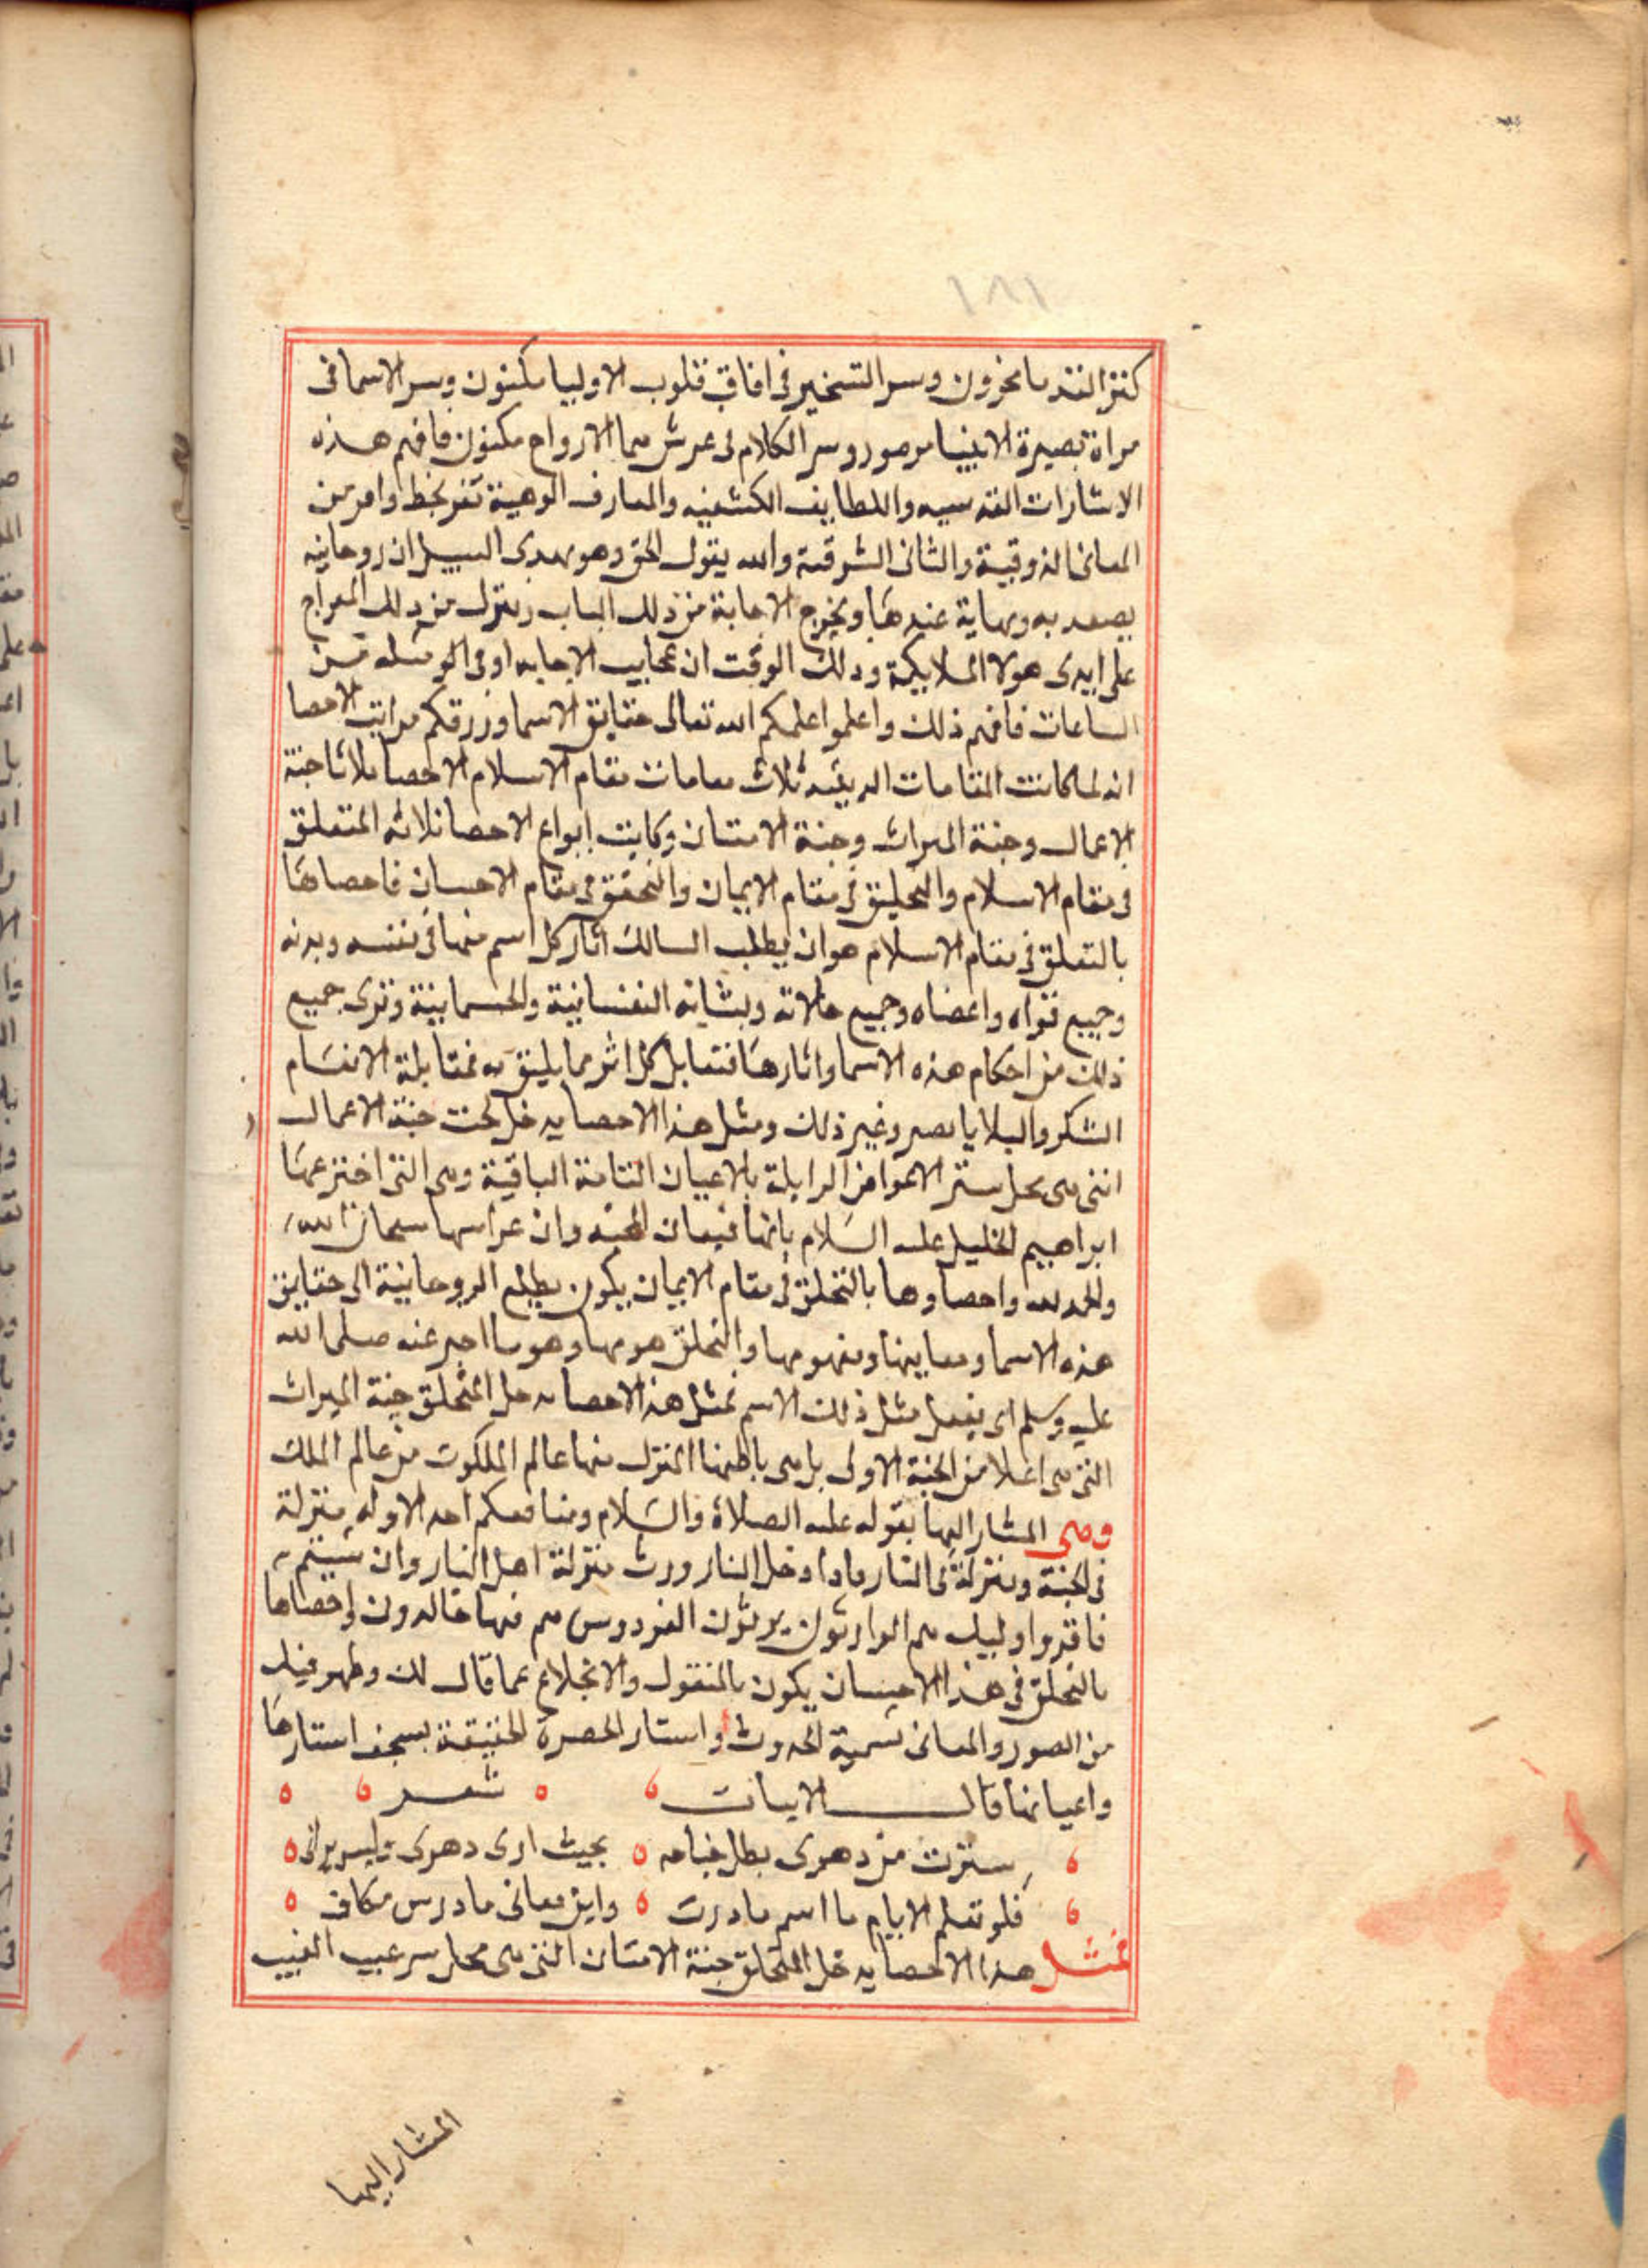 ١٨١
كنز الندما مخزون وسر التسخير فى افاق قلوب الاوليا مكنون وسر الاسما فى
مراة بصيرة الانبيا مرموز وسر الكلام فى عرش سما الارواح مكنون فافهم هذه
الاشارات القدسيه واللطايف الكشفيه والمعارف الوهبية تفز بحظ وافر من
المعانى الذوقية والثانى الشرقية والله يقول الحق وهو يهدى السبيل ان روحانيه
يصعد به ونهاية عندها ويخرج الاجابة من ذلك الباب وينزل من ذلك المعراج
على ايدى هولا الملايكة وذلك الوقت ان عجايب الاجابه اوفى الوسيله من
الساعات فافهم ذلك واعلموا اعلمكم الله تعالى حقايق الاسما ورزقكم مراتب الاحصا
انه لما كانت المقامات الدينيه ثلاث مقامات مقام الاسلام الاحصا ثلاثا جنة
الاعمال وجنة الميراث وجنة الامتنان وكانت ابواع الاحصا ثلاثه المتعلق
فى مقام الاسلام والتخليق فى مقام الايمان والتحقق فى مقام الاحسان فاحصاها
بالتعلق فى مقام الاسلام هو ان يطلب السالك اثار كل اسم منها فى نفسه وبدنه
وجميع قواه واعضاه وجميع حالاته وبشانه النفسانية والجسمانية وترى جميع
ذلك من احكام هذه الاسما واثارها فتقابل كل اثر مما يليق به فمقابلة الانقسام
الشكر والبلايا بصبر وغير ذلك ومثل هذا الاحصا يدخل تحت جنة الاعمال
انتى هى محل ستر الاعواض الزايلة بالاعيان الثابتة الباقية وهى التى اخترعها
ابراهيم الخليل عليه السلام بانها قيعان الجنه وان غراسها سبحان الله
والحمد لله واحصاوها بالتخلق فى مقام الايمان يكون بطلع الروحانية الى حقايق
هذه الاسما ومعانيها ومفهومها والتخلق هو مها وهو ما اخبر عنه صلى الله
عليه وسلم اى يفعل مثل ذلك الاسم فمثل هذا الاحصا يدخل المتخلق جنة الميراث
التى هى اعلا من الجنة الاولى بل هى باطنها المنزل منها عالم الملكوت من عالم الملك
وهى المشار اليها بقوله عليه الصلاة والسلام وما منكم احد الا وله منزلة
فى الجنة ومنزلة فى النار فاذا دخل النار ورث منزلة اهل النار وان شيتم
فاقروا اوليك هم الوارثون يرثون الفردوس هم فيها خالدون واحصاها
بالتخلق فى هذا الاحسان يكون بالمنقول والانخلاع عما قال لك وظهر فيك
من الصور والمعانى تسمية الحدوث واستار الحضرة الحقيقة بسجف استارها
واعيانها قال الابيات شعر
سترت من دهرى بظل جناحه بحيث ارى دهرى وليس يرانى
فلو تعلم الايام ما اسم ما درت واين معانى ما درس مكانى
فمثل هذا الاحصا يدخل المتخلق جنة الامتنان التى هى محل سر غيب الغيب
المشار اليها